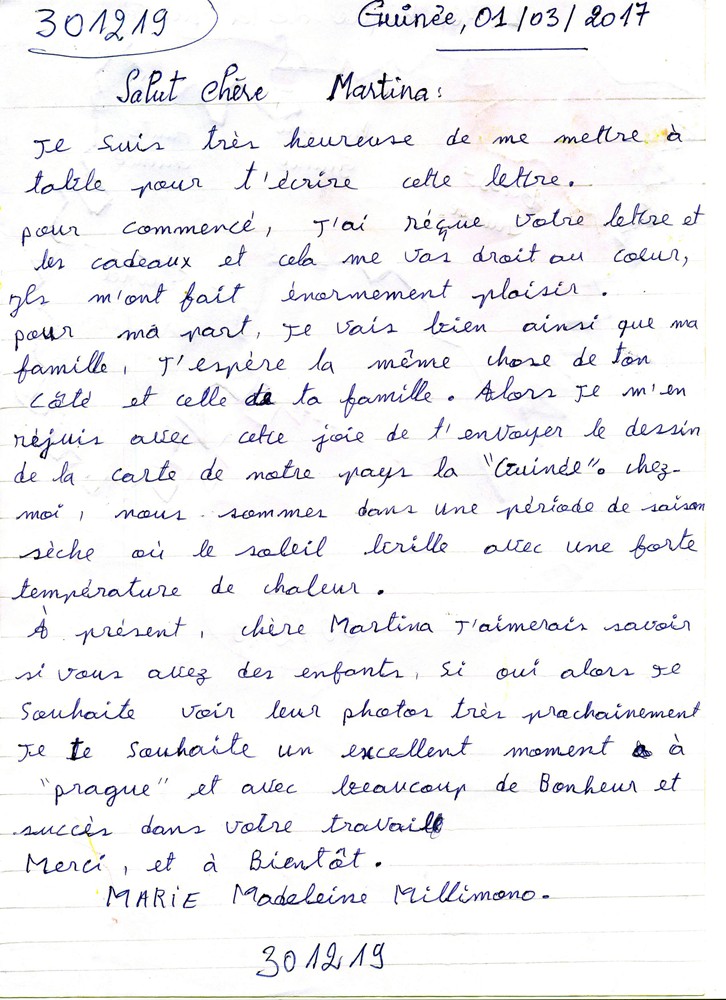 301219
Guinée, 01/03/2017
Salut chère Martina:
Je suis très heureuse de me mettre à
table pour t'écrire cette lettre.
pour commencé, J'ai réçue votre lettre et
les cadeaux et cela me vas droit au coeur,
Ils m'ont fait énormement plaisir.
pour ma part, Je vais bien ainsi que ma
famille, J'espère la même chose de ton
côté et celle de ta famille. Alors Je m'en
réjuis avec cette joie de t'envoyer le dessin
de la carte de notre pays la "Guinée". chez-
moi, nous sommes dans une période de saison
sèche où le soleil brille avec une forte
température de chaleur.
À présent, chère Martina J'aimerais savoir
si vous avez des enfants, Si oui alors Je
Souhaite voir leur photos très prochainement
Je te Souhaite un excellent moment à
"prague" et avec beaucoup de Bonheur et
succès dans votre travail
Merci, et à Bientôt.
MARiE Madeleine Millimono.
301219